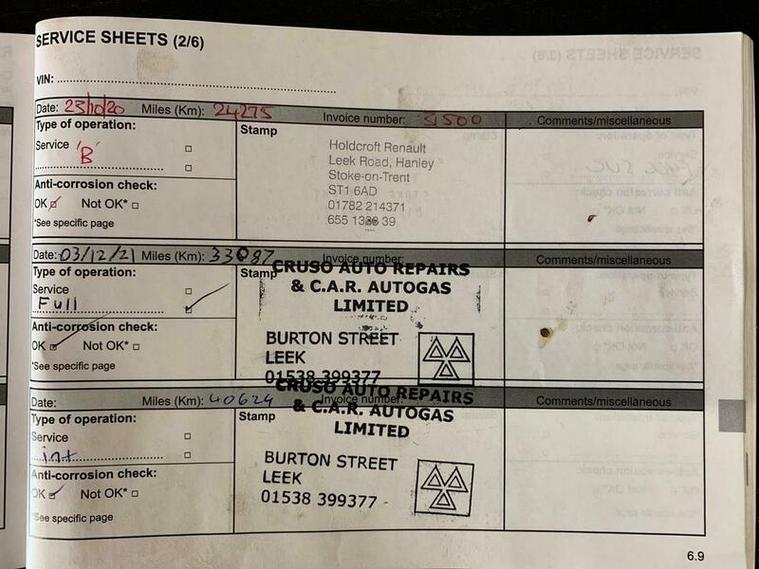 SERVICE SHEETS (2/6)
VIN:
Date: 23/10/20 Miles (Km): 24275 Invoice number: 31500 Comments/miscellaneous
Type of operation:
Stamp
Service 'B'
Anti-corrosion check:
OK Not OK*
*See specific page
Holdcroft Renault
Leek Road, Hanley
Stoke-on-Trent
ST1 6AD
01782 214371
Date: 03/12/21 Miles (Km): 33087 Invoice number: Comments/miscellaneous
Type of operation:
Stamp
Service
Full
Anti-corrosion check:
OK Not OK*
*See specific page
CRUSO AUTO REPAIRS
& C.A.R. AUTOGAS
LIMITED
BURTON STREET
LEEK
01538 399377
Date: Miles (Km): 40624 Invoice number: Comments/miscellaneous
Type of operation:
Stamp
Service
int
Anti-corrosion check:
OK Not OK*
*See specific page
CRUSO AUTO REPAIRS
& C.A.R. AUTOGAS
LIMITED
BURTON STREET
LEEK
01538 399377
6.9